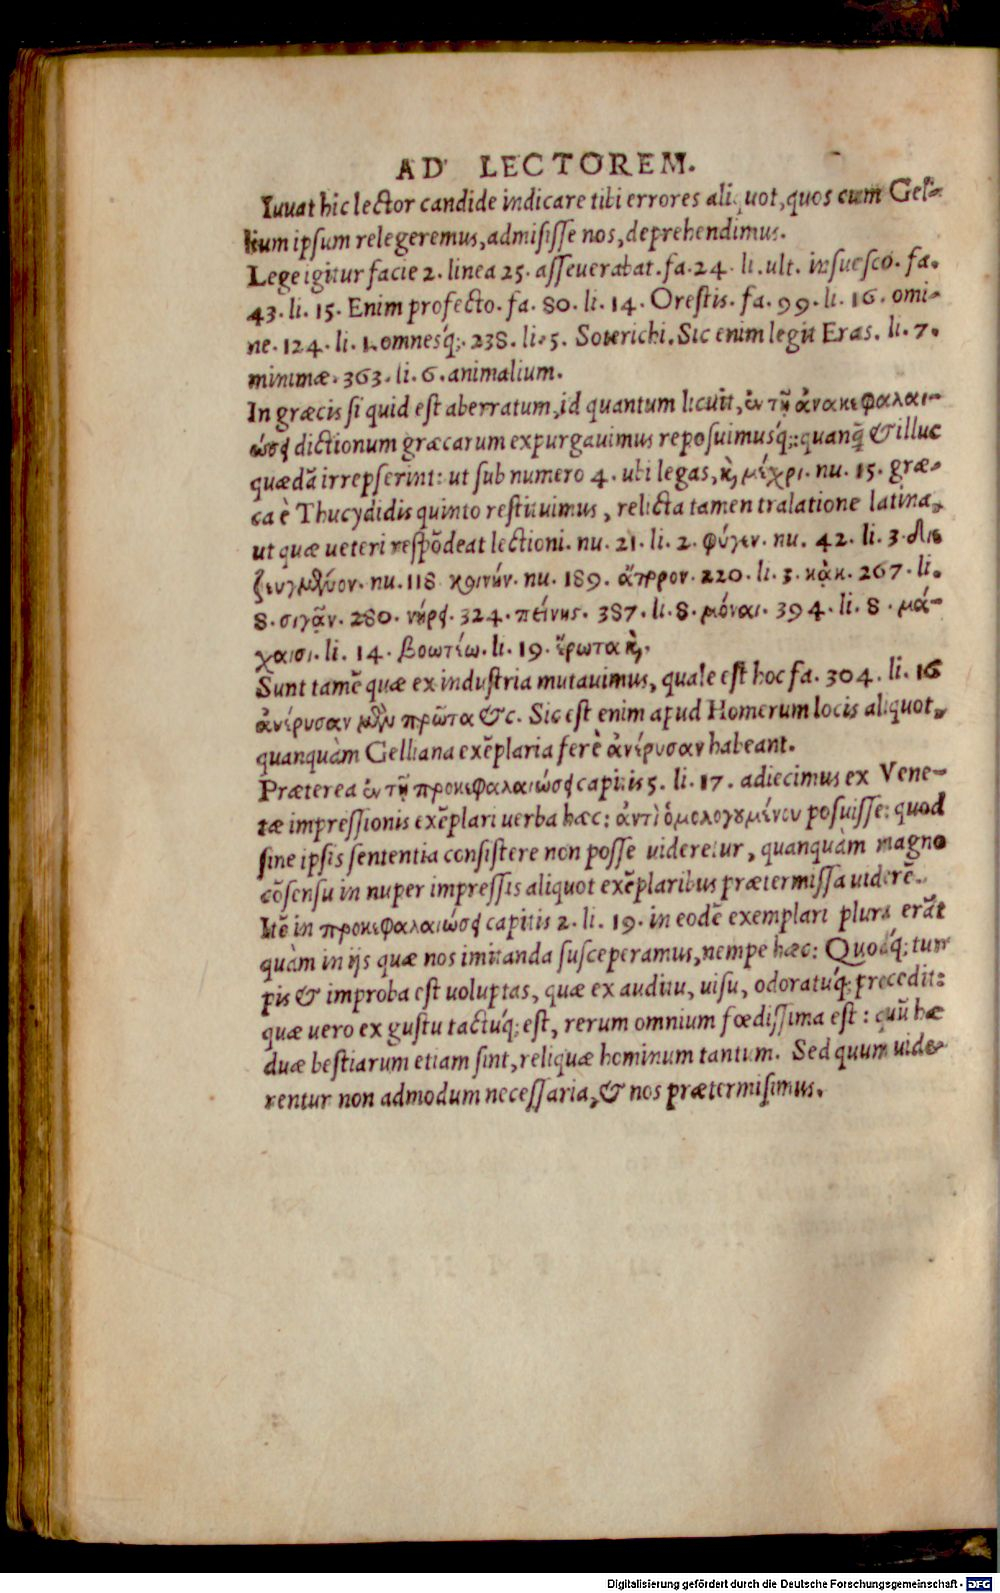 AD LECTOREM.
Iuuat hic lector candide indicare tibi errores aliquot, quos cum Gel-
lium ipsum relegeremus, admisisse nos, deprehendimus.
Lege igitur facie 2. linea 25. asseuerabat. fa. 24. li. ult. insuesco. fa.
43. li. 15. Enim profecto. fa. 80. li. 14. Orestis. fa. 99. li. 16. omi-
ne. 124. li. 1. omnesq́;. 238. li. 5. Soterichi. Sic enim legit Eras. li. 7.
minimæ. 363. li. 6. animalium.
In græcis si quid est aberratum, id quantum licuit, ἐν τῇ ἀνακεφαλαι-
ώσει dictionum græcarum expurgauimus reposuimusq́;: quanq̃ & illuc
quædã irrepserint: ut sub numero 4. ubi legas, καὶ μέχρι. nu. 15. græ-
ca è Thucydidis quinto restituimus, relicta tamen tralatione latina,
ut quæ ueteri respõdeat lectioni. nu. 21. li. 2. φύγεν. nu. 42. li. 3. διε
ζευγμένον. nu. 118 κρινήν. nu. 189. ἄπρρον. 220. li. 3. κἀκ. 267. li.
8. σιγᾶν. 280. νήρει. 324. πείνης. 387. li. 8. μόναι. 394. li. 8. μά-
χαισι. li. 14. βοωτίω. li. 19. ἔρωτα καὶ.
Sunt tamẽ quæ ex industria mutauimus, quale est hoc fa. 304. li. 16
ἀνέρυσαν μὲν πρῶτα &c. Sic est enim apud Homerum locis aliquot,
quanquàm Gelliana exẽplaria ferè ἀνέρυσαν habeant.
Præterea ἐν τῇ προκεφαλαιώσει capitis 5. li. 17. adiecimus ex Vene-
tæ impressionis exẽplari uerba hæc: ἀντὶ ὁμολογουμένου posuisse: quod
sine ipsis sententia consistere non posse uideretur, quanquàm magno
cõsensu in nuper impressis aliquot exẽplaribus prætermissa uiderẽ.
Itẽ in προκεφαλαιώσει capitis 2. li. 19. in eodẽ exemplari plura erãt
quàm in ijs quæ nos imitanda susceperamus, nempe hæc: Quodq́; tur
pis & improba est uoluptas, quæ ex auditu, uisu, odoratuq́; precedit:
quæ uero ex gustu tactuq́; est, rerum omnium fœdissima est: quũ hæ
duæ bestiarum etiam sint, reliquæ hominum tantum. Sed quum uide-
rentur non admodum necessaria, & nos prætermisimus.
Digitalisierung gefördert durch die Deutsche Forschungsgemeinschaft - DFG